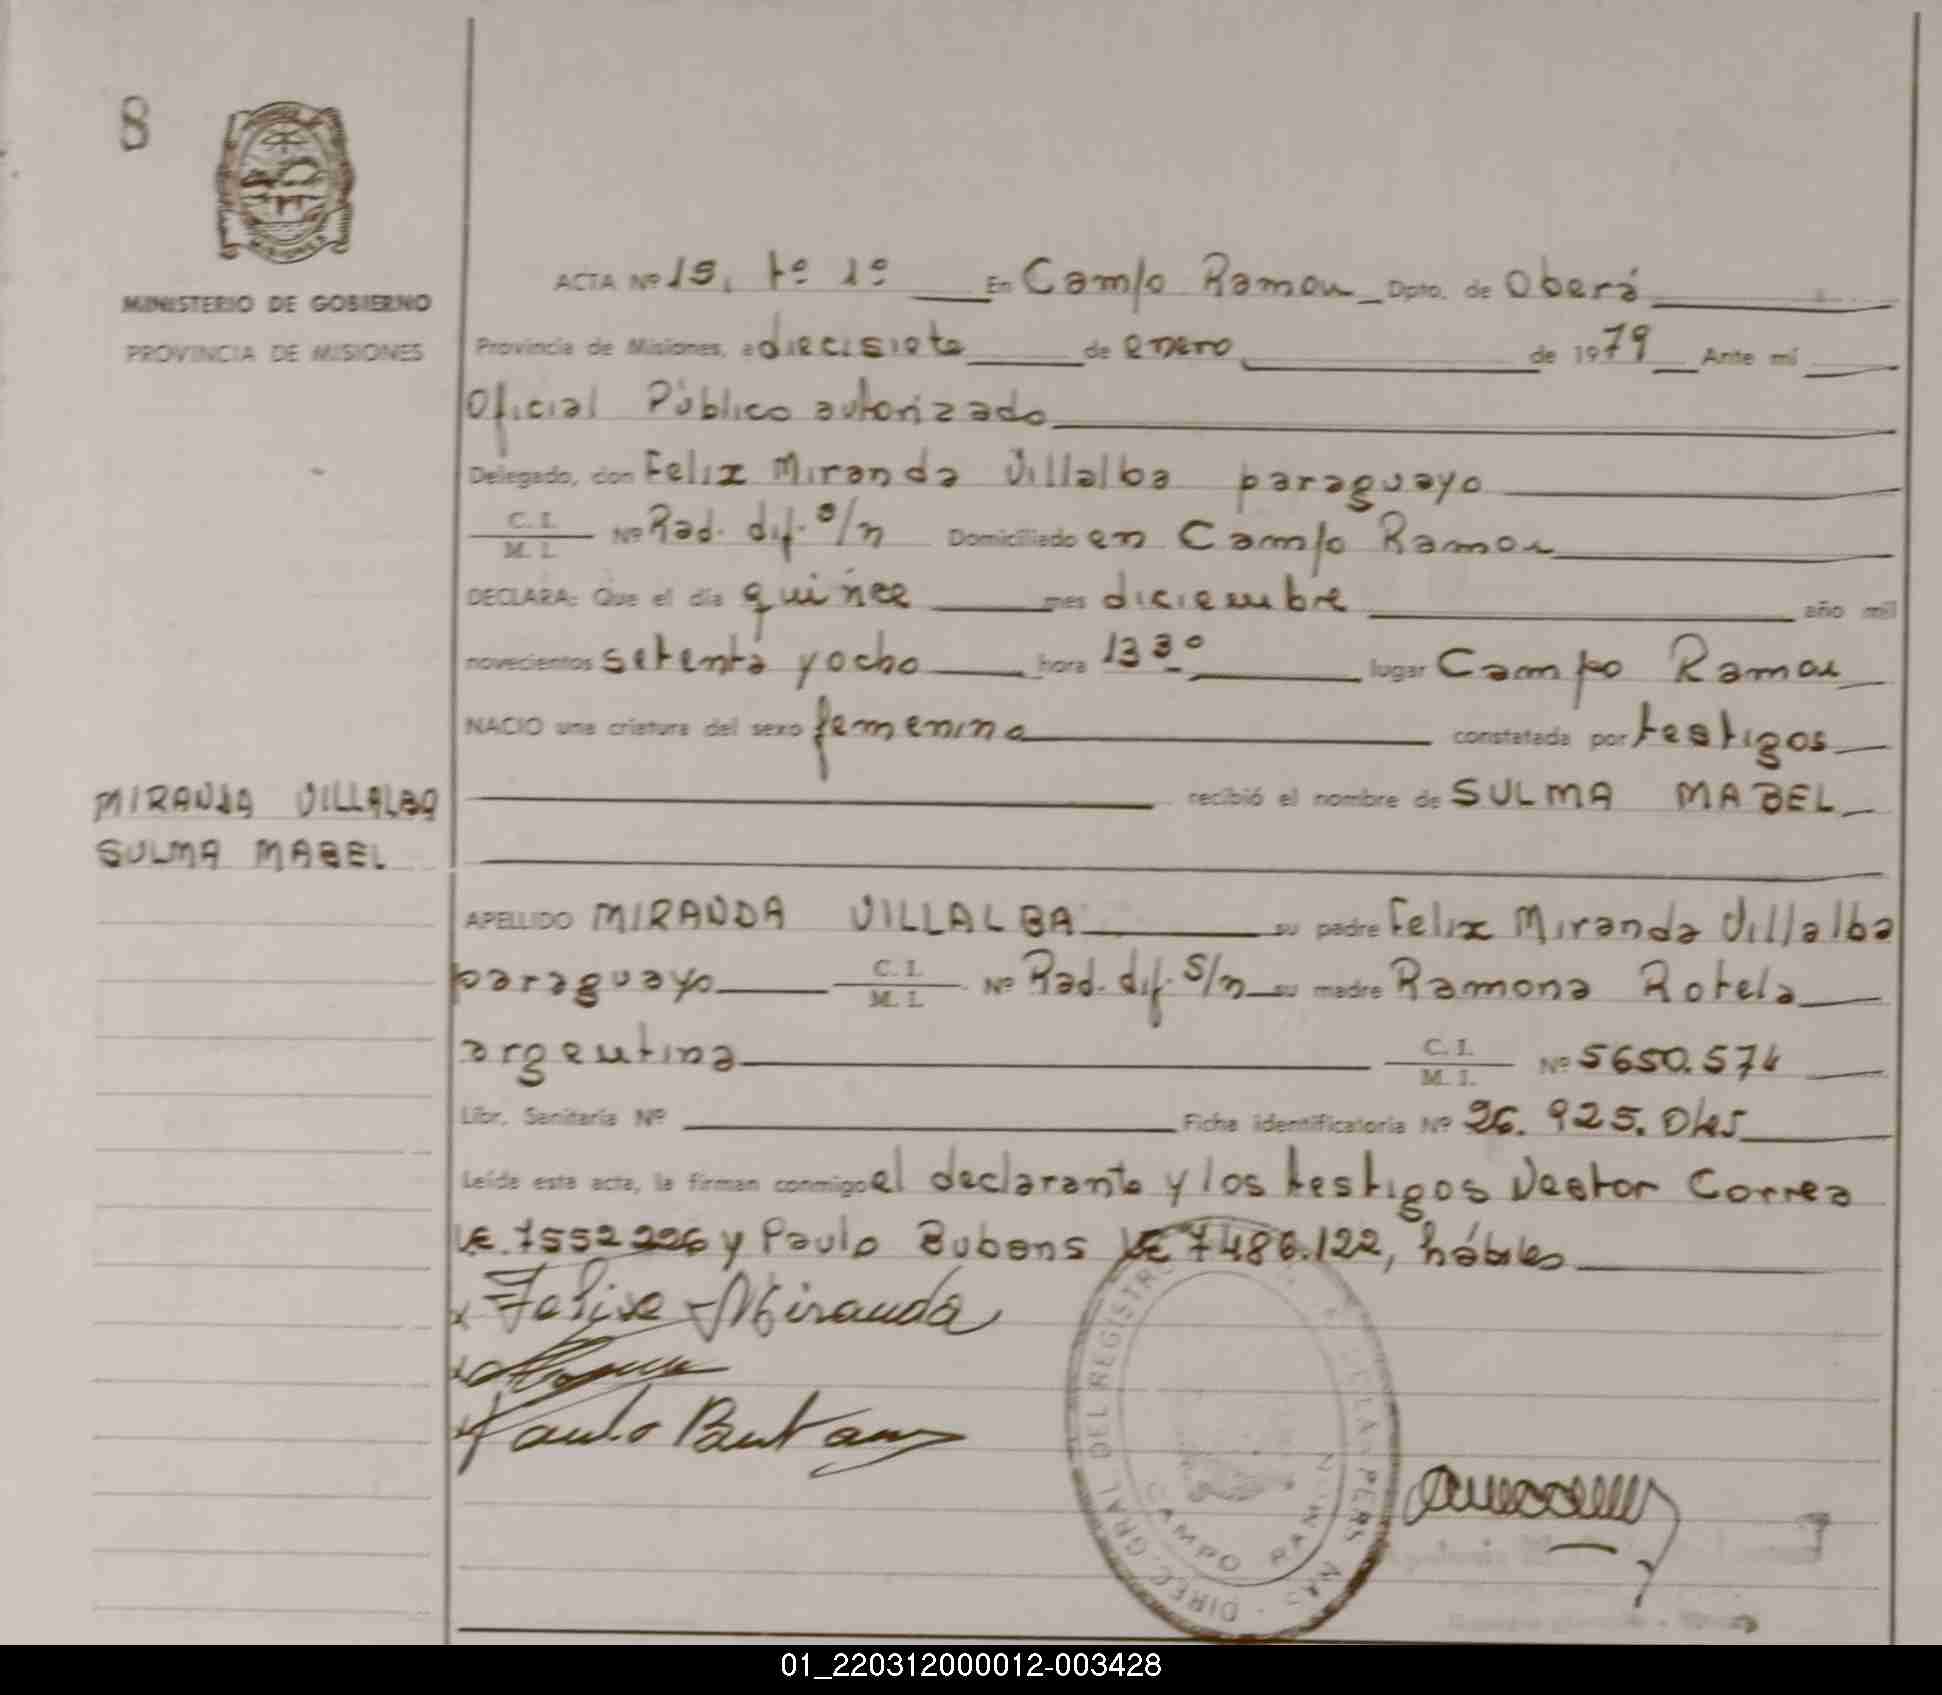 8
MISIONES
MINISTERIO DE GOBIERNO
PROVINCIA DE MISIONES
ACTA Nº 15, tº 1º En Campo Ramon Dpto. de Oberá
Provincia de Misiones, a diecisiete de enero de 1979 Ante mí
Oficial Público autorizado
Delegado, don Felix Miranda Villalba paraguayo
C. I.
M. I. Nº Rad. dif. s/n Domiciliado en Campo Ramon
DECLARA: Que el día quince mes diciembre año mil
novecientos setenta y ocho hora 13 30 lugar Campo Ramon
NACIO una criatura del sexo femenino constatada por testigos
recibió el nombre de SULMA MABEL
MIRANDA VILLALBA
SULMA MABEL
APELLIDO MIRANDA VILLALBA su padre Felix Miranda Villalba
paraguayo C. I. M. I. Nº Rad. dif. s/n su madre Ramona Rotela
argentina C. I. M. I. Nº 5650.574
Libr. Sanitaria Nº Ficha identificatoria Nº 26.925.
Leída esta acta, la firman conmigo el declarante y los testigos Nestor Correa
LE. 7552226 y Paulo Bubans LE 7486.122, hábiles
Felix Miranda
Paulo
DIREC. GRAL. DEL REGISTRO PERS
CAMPO RAMON
01_220312000012-003428